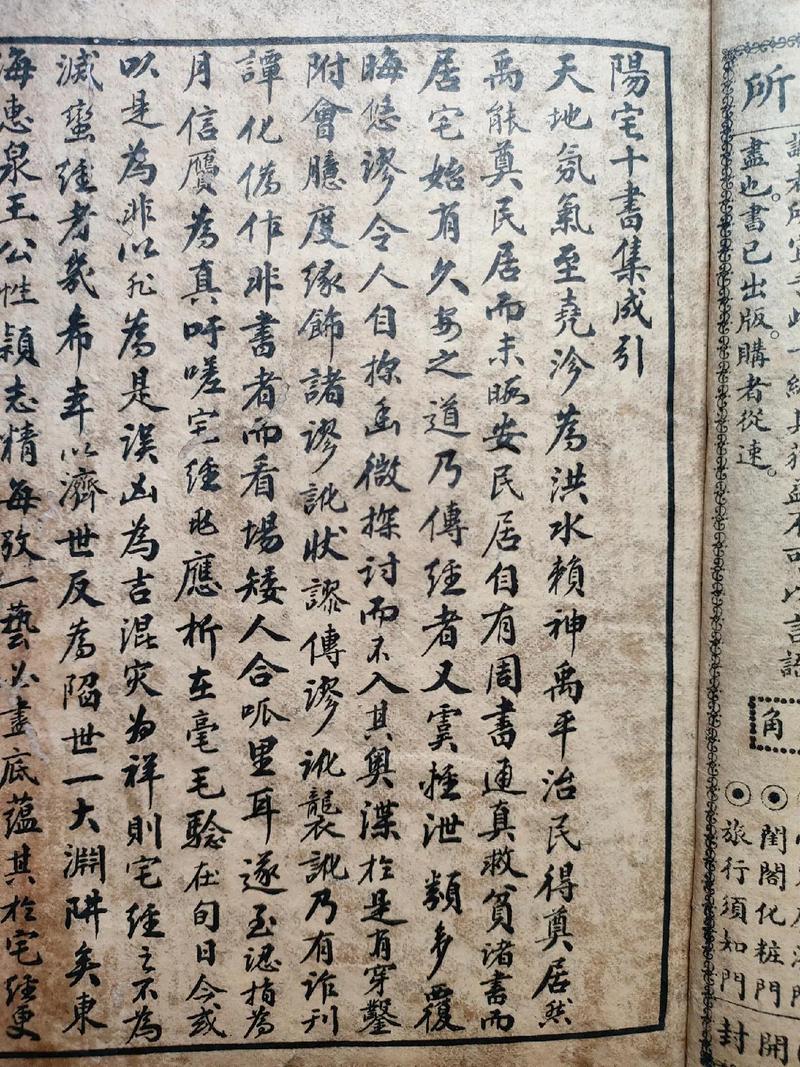 所
盡也。書已出版。購者從速。
角
閨閣化粧門
旅行須知門
開
封
陽宅十書集成引
天地氛氣至堯沴為洪水賴神禹平治民得奠居然
禹能奠民居而未暇安民居自有周書通真救貧諸書而
居宅始有久安之道乃傳經者又虞輕泄類多覆
晦悠謬令人自探幽微探討而不入其奧渫於是有穿鑿
附會臆度緣飾諸謬訛狀謬傳謬訛襲訛乃有詐刊
譚化偽作非書者而看場矮人合呱里耳遂至認指為
月信贗為真吁嗟宅經兆應析在毫毛騐在旬日今或
以是為非以非為是誤凶為吉混灾为祥則宅經之不為
滅蠻經者幾希幸以濟世反為陷世一大淵阱矣東
海惠泉王公性穎志精每攷一藝必盡底蘊其於宅經更